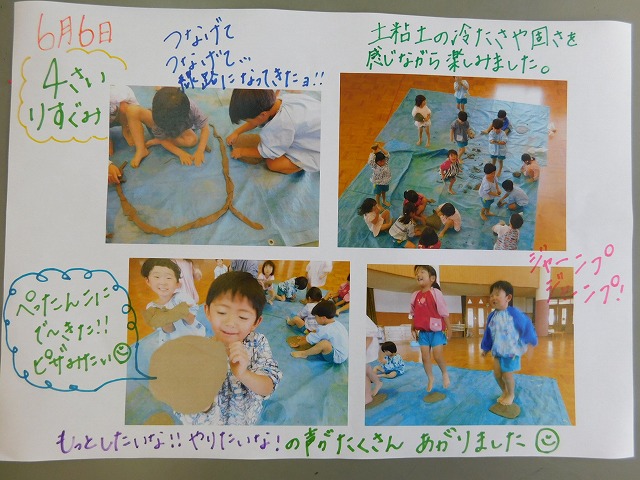 6月6日
4さい
りすぐみ
つなげて
つなげて…
線路になってきたョ!!
土粘土の冷たさや固さを
感じながら楽しみました。
ぺったんこに
で〜きた!!
ピザみたい
ジャーンプ
ジャーンプ!
もっとしたいな!! やりたいな! の声がたくさん あがりました